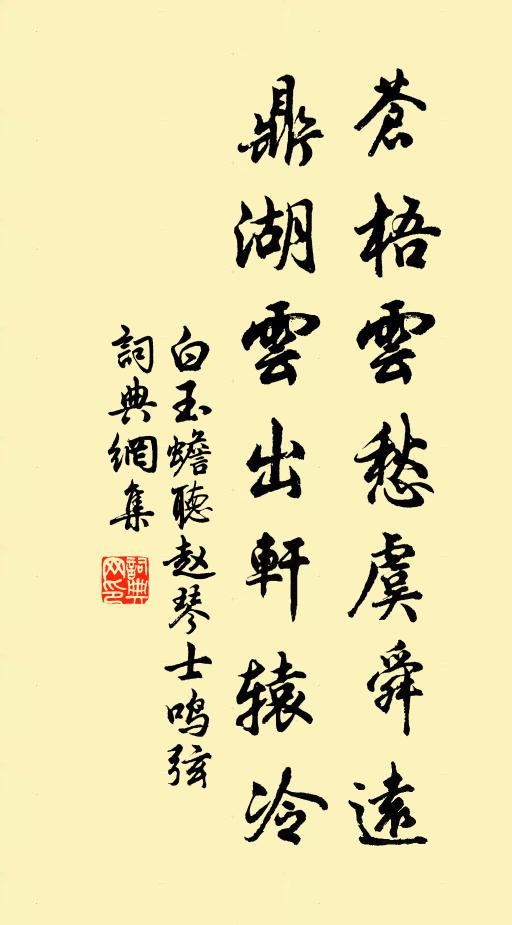 蒼梧雲愁虞舜遠
鼎湖雲出軒辕冷
白玉蟾聽赵琴士鸣弦
詞典網集
詞典
网印